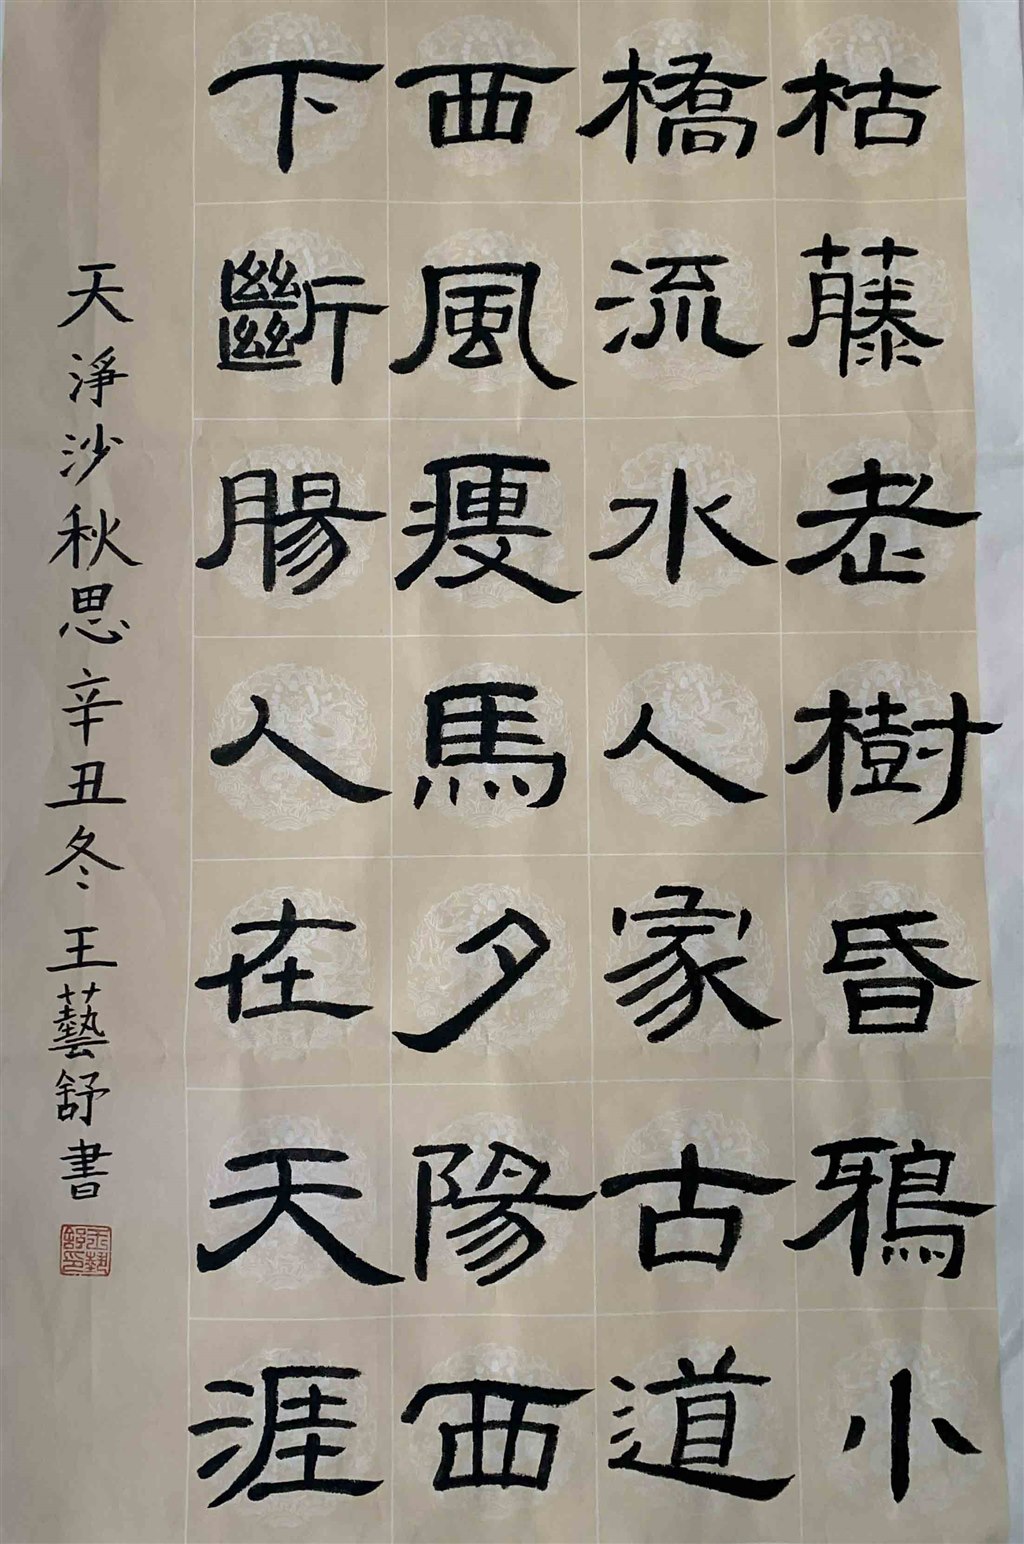 枯藤老樹昏鴉小
橋流水人家古道
西風瘦馬夕陽西
下斷腸人在天涯
天淨沙秋思辛丑冬王藝舒書